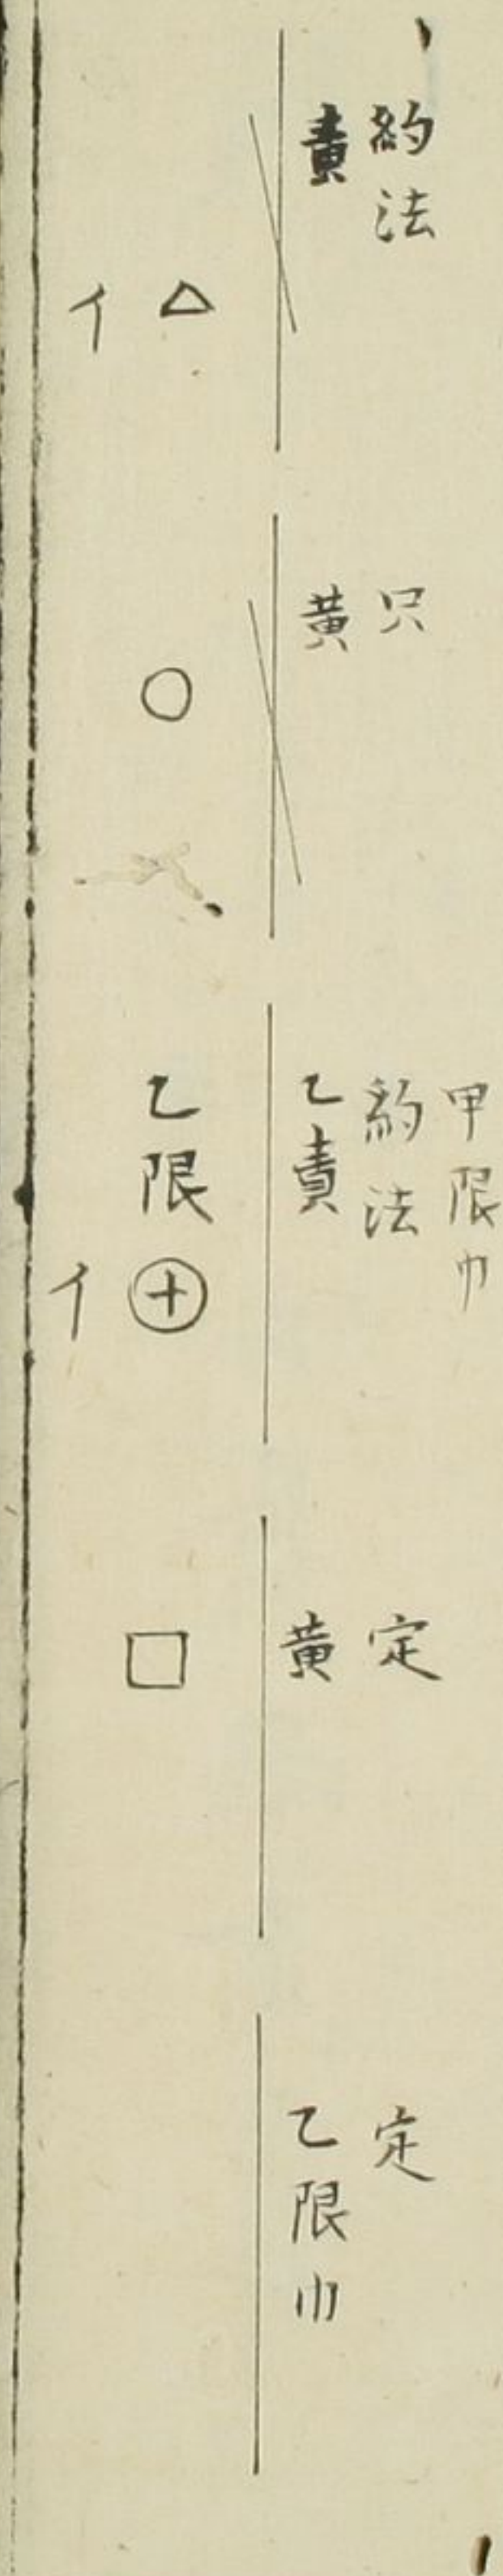 約法
責
△
イ
只
黄
○
甲限巾
約法
乙責
乙限
⊕
イ
定
黄
□
定
乙限巾